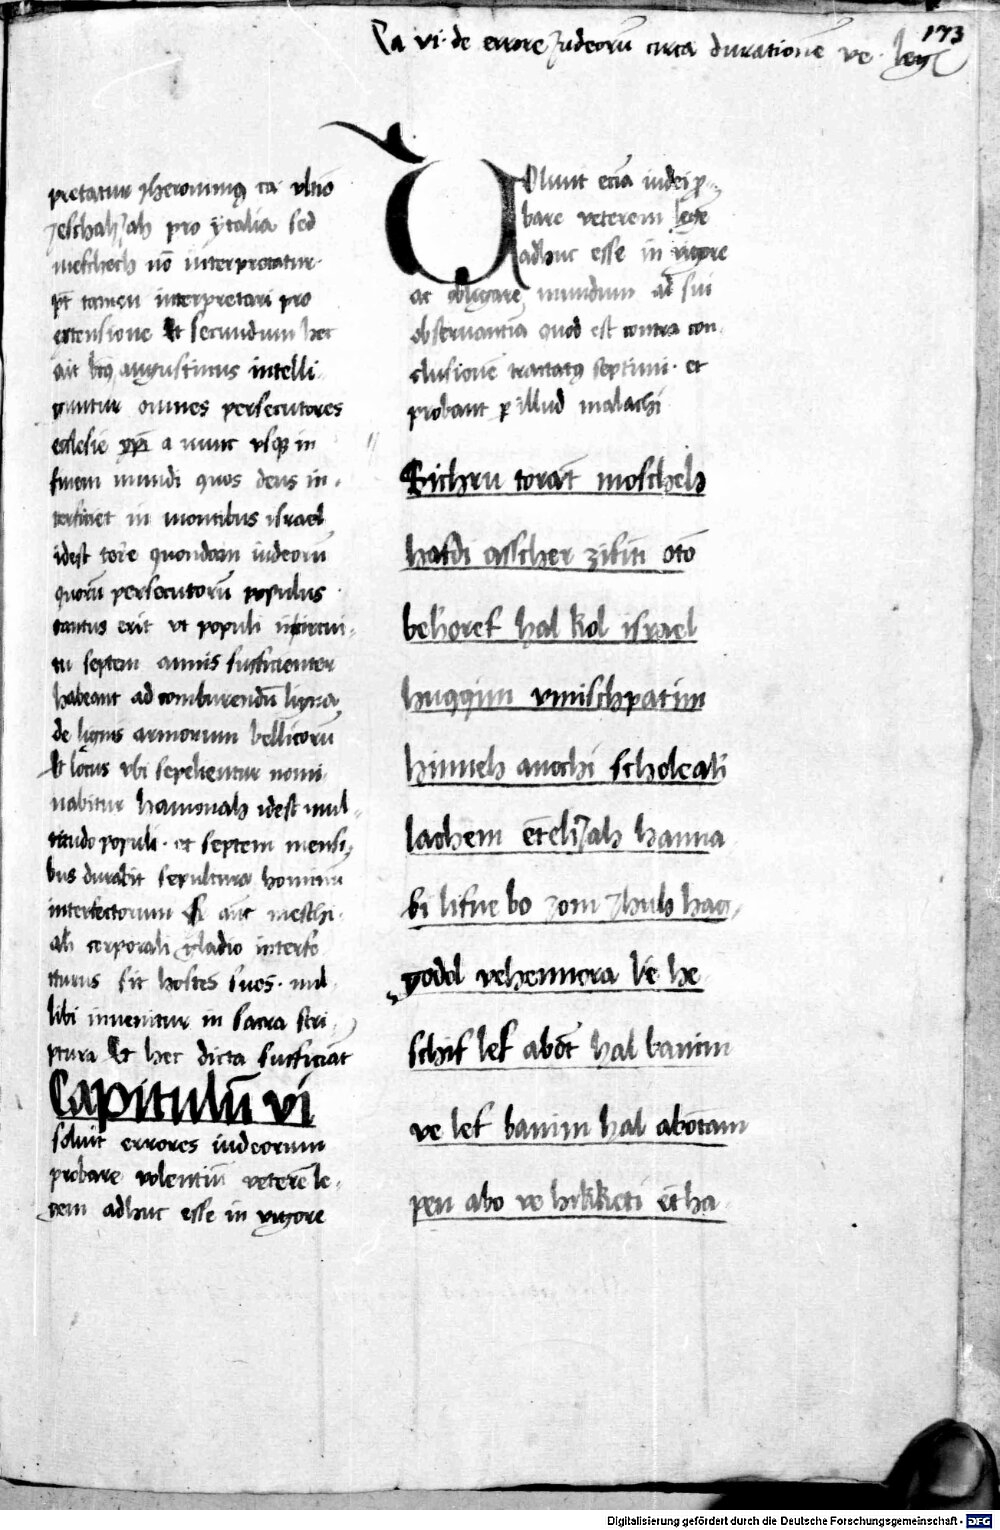 Ca vi. de errore Judeorū circa durationē ve. leg
173
pretatur Jheronimꝰ ca vltio
Jeschah Jah pro ytalia sed
meschech nō interpretatur.
pt tamen interpretari pro
extensione Et secundum hec
ait btꝰ augustinus intelli
guntur omnes persecutores
ecclesie xpi a nunc vsqꝫ in
finem mundi quos deus in
terficiet in montibus israel
idest terre quondam iudeorū
quorū persecutorū populus
tantus erit vt populi in circui
tu septem annis sufficienter
habeant ad comburendū ligna
de lignis armorum bellicorū
Et locus vbi sepelientur nomi
nabitur hamonah idest mul
titudo populi. et septem mensi
bus durabit sepultura hominū
interfectorum Et autē meschi
ah corporali gladio interfe
cturus sit hostes suos. nul
libi inuenitur in sacra scri
ptura Et hec dicta sufficiāt
Capitulū vi
soluit errores iudeorum
probare volentiū veterē le
gem adhuc esse in vigore
VOlunt eciā iudei pro
bare veterem legē
adhuc esse in vigore
ac obligare mundum ad sui
obseruantiā quod est contra con
clusionē tractatꝰ septimi. et
probant p illud malachi
Sichru torat moscheh
hafdi asscher zibiti oto
behoref hal kol israel
huqqim vmischpatim
hinneh anochi scholeah
lachem et eliJah hanna
bi lifne bo Jom Jhuh hag
gadol vehennora Ve he
schif lef abot hal banim
ve lef banim hal abotam
pen abo ve hikketi et ha
Digitalisierung gefördert durch die Deutsche Forschungsgemeinschaft - DFG